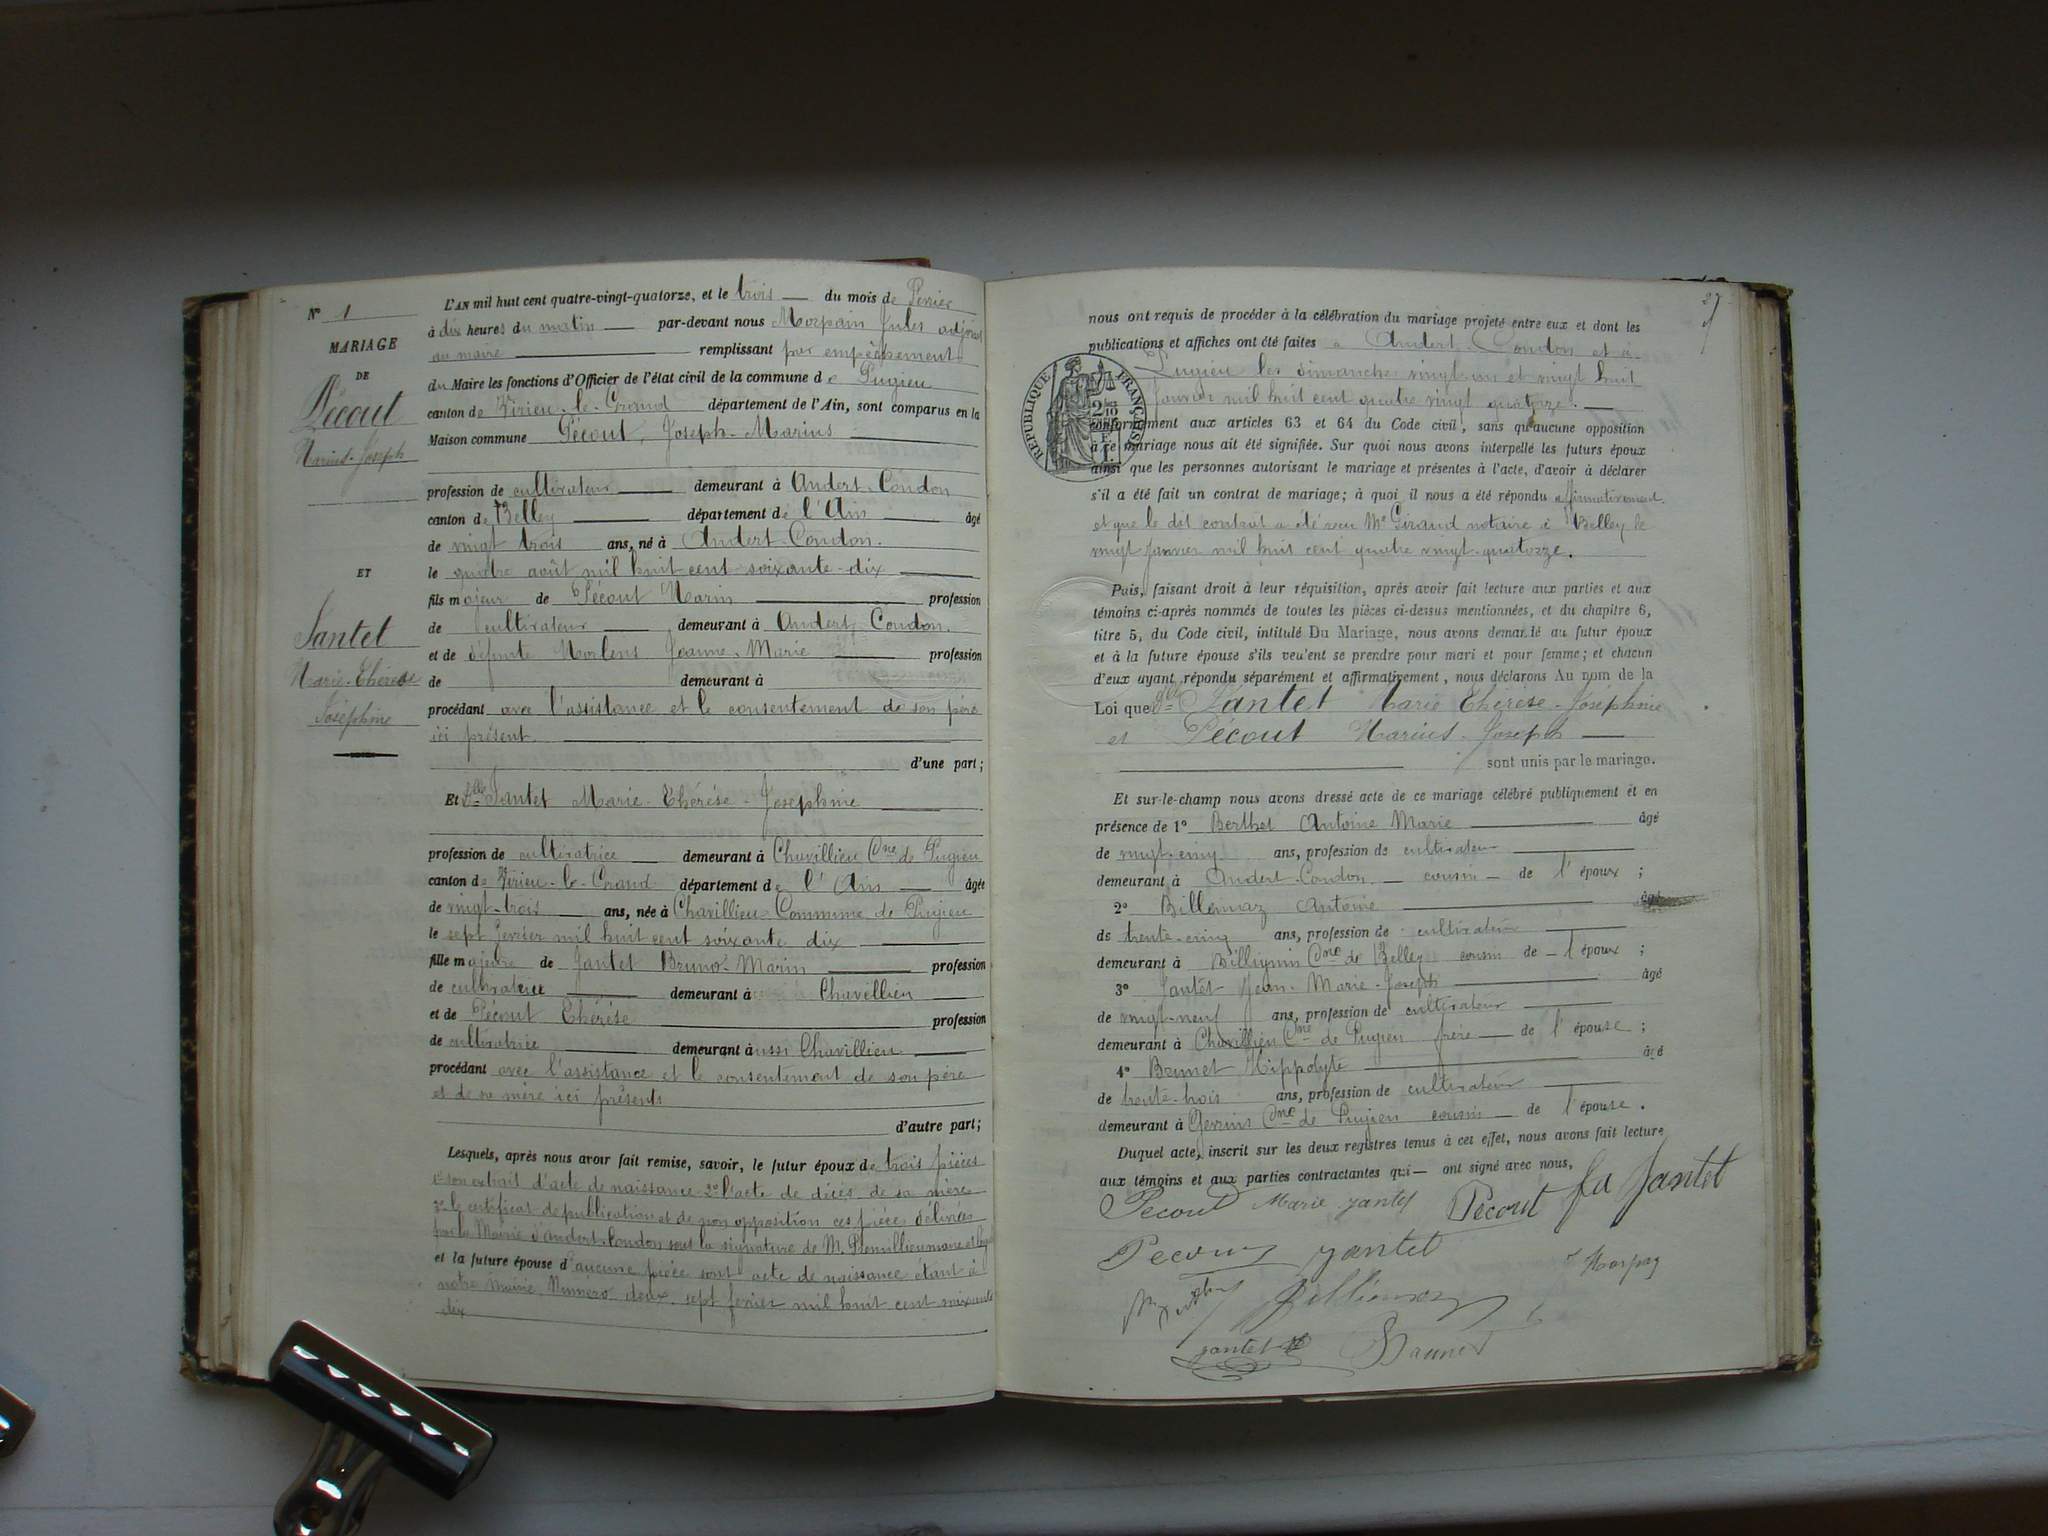 N° 1
MARIAGE
DE
Pécout
Marius-Joseph
ET
Jantet
Marie-Thérèse
Joséphine
L'AN mil huit cent quatre-vingt-quatorze, et le trois du mois de Fevrier
à dix heures du matin par-devant nous Morpain Jules adjoint
au maire remplissant par empêchement
du Maire les fonctions d'Officier de l'état civil de la commune de Pugieu
canton de Virieu-le-Grand département de l'Ain, sont comparus en la
Maison commune Pécout, Joseph-Marius
profession de cultivateur demeurant à Andert-Condon
canton de Belley département de l'Ain âgé
de vingt trois ans, né à Andert-Condon.
le quatre août mil huit cent soixante-dix
fils majeur de Pécout Marin profession
de cultivateur demeurant à Andert, Condon.
et de défunte Morlens Jeanne-Marie profession
de demeurant à
procédant avec l'assistance et le consentement de son père
ici présent
d'une part;
Et Dlle Jantet Marie-Thérèse-Josephine
profession de cultivatrice demeurant à Chavillieu Cne de Pugieu
canton de Virieu-le-Grand département de l'Ain âgée
de vingt-trois ans, née à Chavillieu Commune de Pugieu
le sept fevrier mil huit cent soixante dix
fille majeure de Jantet Bruno-Marin profession
de demeurant à Chavillieu
et de Pécout Thérèse profession
de cultivatrice demeurant aussi Chavillieu
procédant avec l'assistance et le consentement de son père
et de sa mère ici présents
d'autre part;
Lesquels, après nous avoir fait remise, savoir, le futur époux de trois pièces
1° son extrait d'acte de naissance 2° l'acte de décès de sa mère
3° le certificat de publication et de non opposition ces pièces délivrées
par la Mairie d'Andert-Condon sous la signature de M.
et la future épouse d'aucune pièce sont acte de naissance étant à
notre mairie Numéro deux, sept fevrier mil huit cent soixante
dix
27
nous ont requis de procéder à la célébration du mariage projeté entre eux et dont les
publications et affiches ont été faites a Andert-Condon et à
Pugieu les dimanche vingt un et vingt huit
Janvier mil huit cent quatre vingt quatorze.
RÉPUBLIQUE FRANÇAISE
conformément aux articles 63 et 64 du Code civil, sans qu'aucune opposition
à ce mariage nous ait été signifiée. Sur quoi nous avons interpellé les futurs époux
ainsi que les personnes autorisant le mariage et présentes à l'acte, d'avoir à déclarer
s'il a été fait un contrat de mariage; à quoi il nous a été répondu affirmativement
et que le dit contrat a été recu Me Girand notaire à Belley le
vingt Janvier mil huit cent quatre vingt-quatorze.
Puis, faisant droit à leur réquisition, après avoir fait lecture aux parties et aux
témoins ci-après nommés de toutes les pièces ci-dessus mentionnées, et du chapitre 6,
titre 5, du Code civil, intitulé Du Mariage, nous avons demandé au futur époux
et à la future épouse s'ils veulent se prendre pour mari et pour femme; et chacun
d'eux ayant répondu séparément et affirmativement, nous déclarons Au nom de la
Loi que Dlle Jantet Marie Thérèse-Joséphine
et Pécout Marius-Joseph
sont unis par le mariage.
Et sur-le-champ nous avons dressé acte de ce mariage célébré publiquement et en
présence de 1° Berthet Antoine Marie âgé
de vingt-cinq ans, profession de cultivateur
demeurant à Andert-Condon cousin de l'époux;
2° Billemaz Antoine âgé
de trente-cinq ans, profession de cultivateur
demeurant à Billignin Cne de Belley cousin de l'époux;
3° Jantet Jean-Marie-Joseph âgé
de vingt-neuf ans, profession de cultivateur
demeurant à Chavillieu Cne de Pugieu frère de l'épouse;
4° Brunet Hippolyte âgé
de trente-trois ans, profession de cultivateur
demeurant à Gevrins Cne de Pugieu cousin de l'épouse.
Duquel acte, inscrit sur les deux registres tenus à cet effet, nous avons fait lecture
aux témoins et aux parties contractantes qui ont signé avec nous,
Pecout Marie jantet Pécout Jantet
Pecout jantet
Billemaz
jantet Brunet